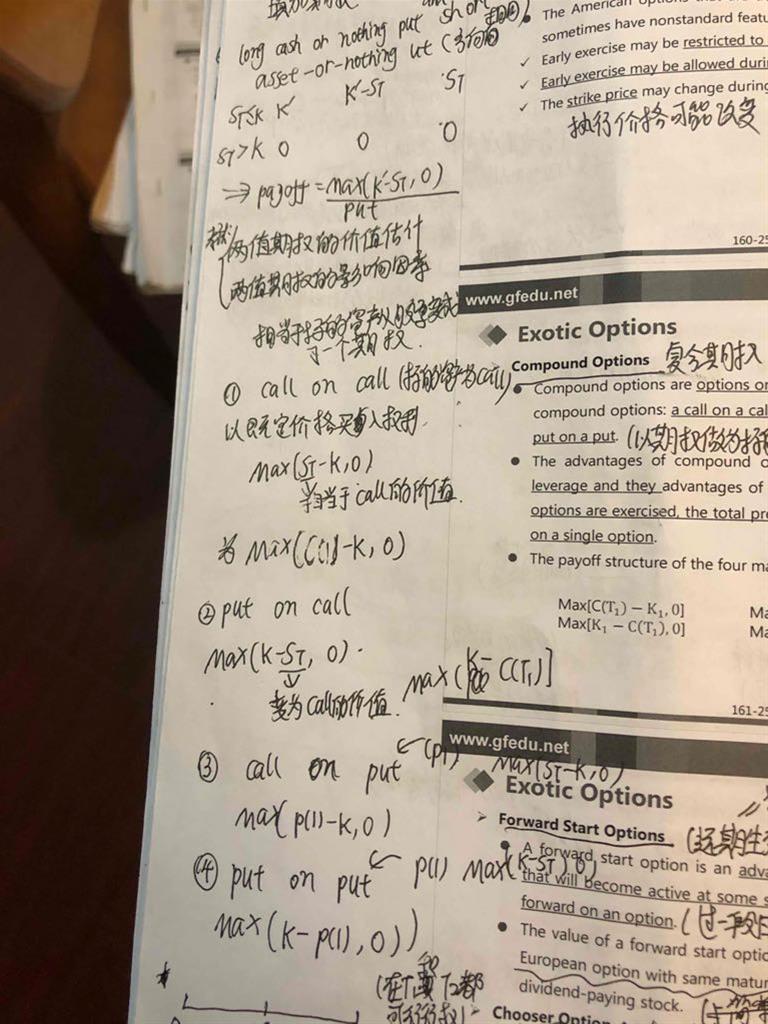 long cash or nothing put short
asset-or-nothing
ST≤K K K-ST ST
ST>K 0 0 0
⇒ payoff = max(K-ST, 0)
put
两值期权的价值估计
两值期权的影响因素
相当于标的资产从股票变成
了一个期权.
① call on call (标的资产为call)
以既定价格买入权利.
Max(ST-K, 0)
相当于call的价值.
为 Max(C(1)-K, 0)
② put on call
Max(K-ST, 0).
变为call的价值.
max(K- C(T1)]
③ call on put ← (P1) Max(ST-K, 0)
max(p(1)-K, 0)
(4) put on put ← p(1) Max(K-ST, 0)
Max(K-p(1), 0))
The American options that
sometimes have nonstandard featu
✓ Early exercise may be restricted to
✓ Early exercise may be allowed durin
✓ The strike price may change during
执行价格可能改变
160-25
www.gfedu.net
Exotic Options
Compound Options 复合期权
• Compound options are options on
compound options: a call on a cal
put on a put. (以期权做为标的
• The advantages of compound o
leverage and they advantages of
options are exercised, the total pre
on a single option.
• The payoff structure of the four ma
Max[C(T₁) − K₁, 0] Ma
Max[K₁ − C(T₁), 0] Ma
161-25
www.gfedu.net
Exotic Options
➢ Forward Start Options
• A forward start option is an adva
that will become active at some s
forward on an option. (过一段
• The value of a forward start optio
European option with same matur
dividend-paying stock.
Chooser Option
(在T1和T2都
可行权)